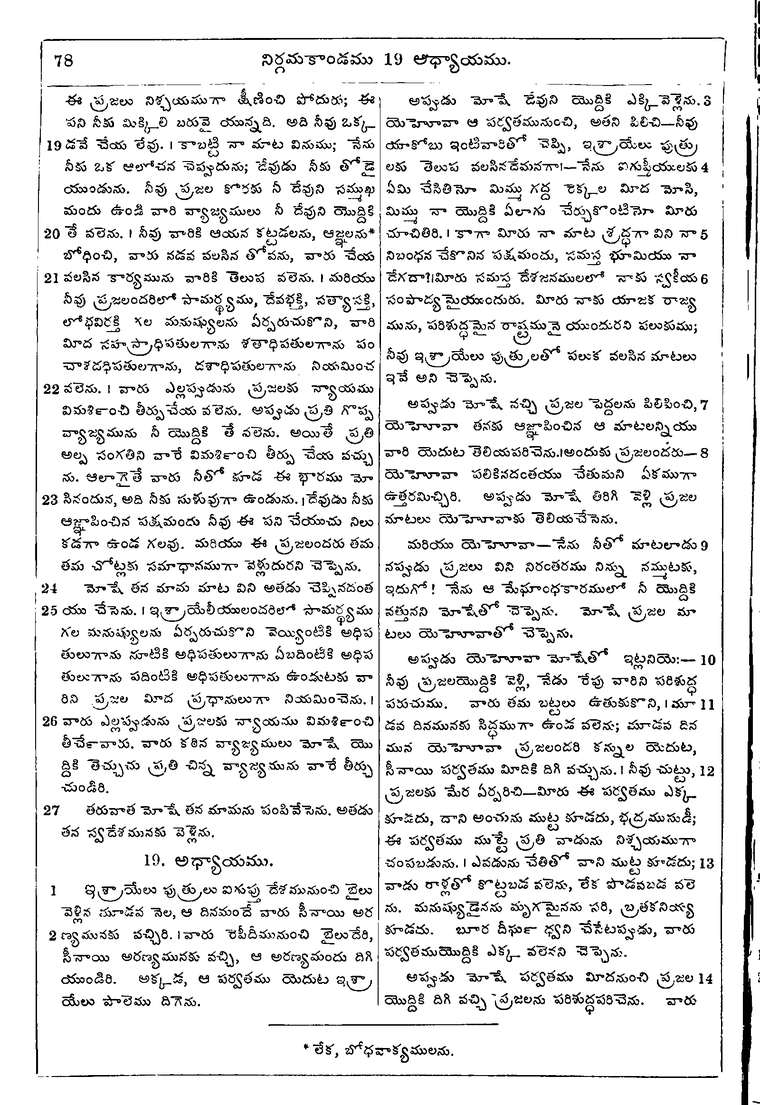 78 నిర్గమకాండము 19 అధ్యాయము.
ఈ ప్రజలు నిశ్చయముగా క్షీణించి పోదురు; ఈ
పని నీకు మిక్కిలి బరువై యున్నది. అది నీవు ఒక్క
19 డవే చేయ లేవు. । కాబట్టి నా మాట వినుము; నేను
నీకు ఒక ఆలోచన చెప్పుదును; దేవుడు నీకు తోడై
యుండును. నీవు ప్రజల కొరకు నీ దేవుని సమ్ముఖ
మందు ఉండి వారి వ్యాజ్యములు నీ దేవుని యొద్దికి
20 తే వలెను. । నీవు వారికి ఆయన కట్టడలను, ఆజ్ఞలను*
బోధించి, వారు నడవ వలసిన తోవను, వారు చేయ
21 వలసిన కార్యమును వారికి తెలుప వలెను. । మరియు
నీవు ప్రజలందరిలో సామర్థ్యము, దేవభక్తి, సత్యాసక్తి,
లోభవిరక్తి గల మనుష్యులను ఏర్పరుచుకొని, వారి
మీద సహస్రాధిపతులగాను శతాధిపతులగాను పం
చాశదధిపతులగాను, దశాధిపతులగాను నియమించ
22 వలెను. । వారు ఎల్లప్పుడును ప్రజలకు న్యాయము
విమర్శించి తీర్పుచేయ వలెను. అప్పుడు ప్రతి గొప్ప
వ్యాజ్యమును నీ యొద్దికి తే వలెను. అయితే ప్రతి
అల్ప సంగతిని వారే విమర్శించి తీర్పు చేయ వచ్చు
ను. ఆలాగైతే వారు నీతో కూడ ఈ భారము మో
23 సినందున, అది నీకు సుళువుగా ఉండును. । దేవుడు నీకు
ఆజ్ఞాపించిన పక్షమందు నీవు ఈ పని చేయుచు నిలు
కడగా ఉండ గలవు. మరియు ఈ ప్రజలందరు తమ
తమ చోట్లకు సమాధానముగా వెళ్లుదురని చెప్పెను.
24 మోషే తన మామ మాట విని అతడు చెప్పినదంత
25 యు చేసెను. । ఇశ్రాయేలీయులందరిలో సామర్థ్యము
గల మనుష్యులను ఏర్పరుచుకొని వెయ్యింటికి అధిప
తులుగాను నూటికి అధిపతులుగాను ఏబదింటికి అధిప
తులుగాను పదింటికి అధిపతులుగాను ఉండుటకు వా
రిని ప్రజల మీద ప్రధానులుగా నియమించెను. ।
26 వారు ఎల్లప్పుడును ప్రజలకు న్యాయము విమర్శించి
తీర్చేవారు. వారు కఠిన వ్యాజ్యములు మోషే యొ
ద్దికి తెచ్చుచు ప్రతి చిన్న వ్యాజ్యమును వారే తీర్చు
చుండిరి.
27 తరువాత మోషే తన మామను పంపివేసెను. అతడు
తన స్వదేశమునకు వెళ్లెను.
19. అధ్యాయము.
1 ఇశ్రాయేలు పుత్రులు ఐగుప్తు దేశమునుంచి బైలు
వెళ్లిన మూడవ నెల, ఆ దినమందే వారు సీనాయి అర
2 ణ్యమునకు వచ్చిరి. । వారు రెపీదీమునుంచి బైలుదేరి,
సీనాయి అరణ్యమునకు వచ్చి, ఆ అరణ్యమందు దిగి
యుండిరి. అక్కడ, ఆ పర్వతము యెదుట ఇశ్రా
యేలు పాలెము దిగెను.
అప్పుడు మోషే దేవుని యొద్దికి ఎక్కి వెళ్లెను. 3
యెహోవా ఆ పర్వతమునుంచి, అతని పిలిచి—నీవు
యాకోబు ఇంటివారితో చెప్పి, ఇశ్రాయేలు పుత్రు
లకు తెలుప వలసినదేమనగా!—నేను ఐగుప్తీయులకు 4
ఏమి చేసితినో మిమ్ము గద్ద రెక్కల మీద మోసి,
మిమ్ము నా యొద్దికి ఏలాగు చేర్చుకొంటినో మీరు
చూచితిరి. । కాగా మీరు నా మాట శ్రద్ధగా విని నా 5
నిబంధన చేకొనిన పక్షమందు, సమస్త భూమియు నా
దేగదా!।మీరు సమస్త దేశజనములలో నాకు స్వకీయ 6
సంపాద్యమైయుందురు. మీరు నాకు యాజక రాజ్య
మును, పరిశుద్ధమైన రాష్ట్రమునై యుందురని పలుకుము;
నీవు ఇశ్రాయేలు పుత్రులతో పలుక వలసిన మాటలు
ఇవే అని చెప్పెను.
అప్పుడు మోషే నచ్చి ప్రజల పెద్దలను పిలిపించి, 7
యెహోవా తనకు ఆజ్ఞాపించిన ఆ మాటలన్నియు
వారి యెదుట తెలియపరిచెను.।అందుకు ప్రజలందరు— 8
యెహోవా పలికినదంతయు చేతుమని ఏకముగా
ఉత్తరమిచ్చిరి. అప్పుడు మోషే తిరిగి వెళ్లి ప్రజల
మాటలు యెహోవాకు తెలియచేసెను.
మరియు యెహోవా—నేను నీతో మాటలాడు 9
నప్పుడు ప్రజలు విని నిరంతరము నిన్ను నమ్ముటకు,
ఇదుగో! నేను ఆ మేఘాంధకారములో నీ యొద్దికి
వత్తునని మోషేతో చెప్పెను. మోషే ప్రజల మా
టలు యెహోవాతో చెప్పెను.
అప్పుడు యెహోవా మోషేతో ఇట్లనియె:— 10
నీవు ప్రజలయొద్దికి వెళ్లి, నేడు రేపు వారిని పరిశుద్ధ
పరుచుము. వారు తమ బట్టలు ఉతుకుకొని, । మూ 11
డవ దినమునకు సిద్ధముగా ఉండ వలెను; మూడవ దిన
మున యెహోవా ప్రజలందరి కన్నుల యెదుట,
సీనాయి పర్వతము మీదికి దిగి వచ్చును. । నీవు చుట్టు, 12
ప్రజలకు మేర ఏర్పరిచి—మీరు ఈ పర్వతము ఎక్క
కూడదు, దాని అంచును ముట్ట కూడదు, భద్రముసుడీ;
ఈ పర్వతము ముట్టే ప్రతి వాడును నిశ్చయముగా
చంపబడును. । ఎవడును చేతితో వాని ముట్ట కూడదు; 13
వాడు రాళ్లతో కొట్టబడ వలెను, లేక పొడవబడ వలె
ను. మనుష్యుడైనను మృగమైనను సరి, బ్రతకనియ్య
కూడదు. బూర దీర్ఘ ధ్వని చేసేటప్పుడు, వారు
పర్వతముయొద్దికి ఎక్క వలెనని చెప్పెను.
అప్పుడు మోషే పర్వతము మీదనుంచి ప్రజల 14
యొద్దికి దిగి వచ్చి ప్రజలను పరిశుద్ధపరిచెను. వారు
* లేక, బోధవాక్యములను.